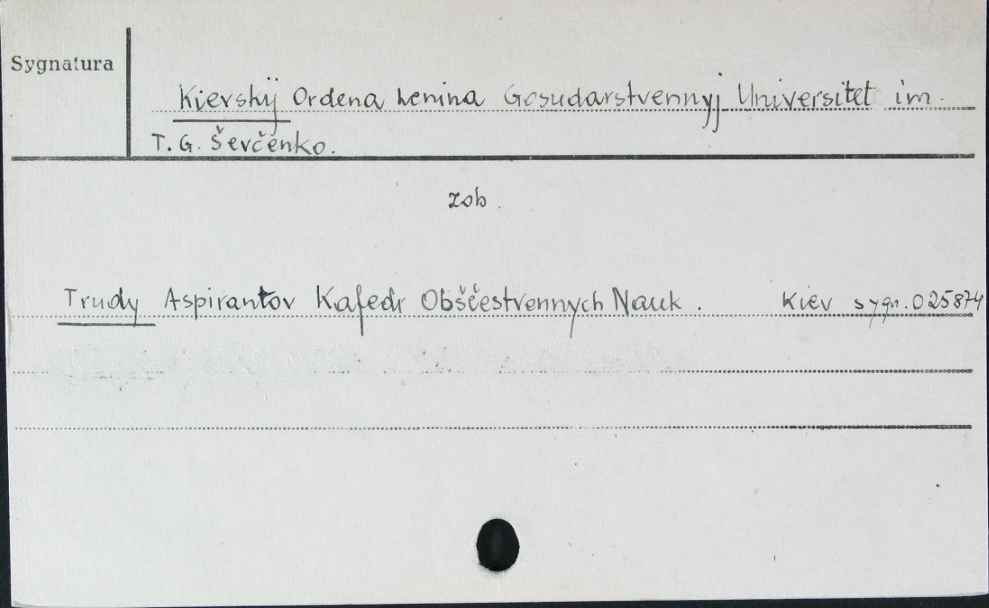 Sygnatura
Kievskij Ordena Lenina Gosudarstvennyj Universitet im.
T. G. Ševčenko.
zob.
Trudy Aspirantov Kafedr Obščestvennych Nauk. Kiev sygn. 025874